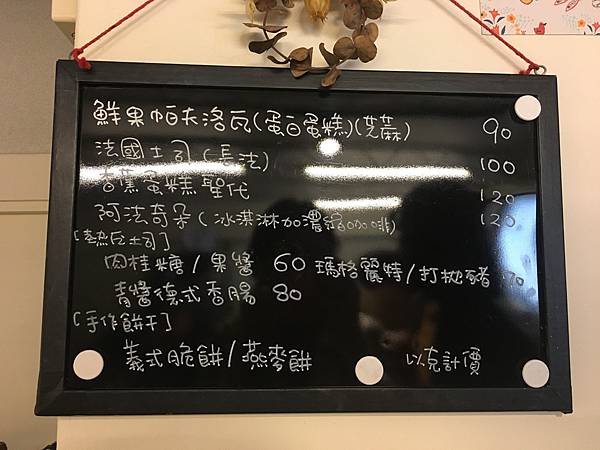 鮮果帕夫洛瓦(蛋白蛋糕)(芝蔴) 90
法國土司(長法) 100
香蕉蛋糕聖代 120
阿法奇朵(冰淇淋加濃縮咖啡) 120
[熱瓦土司]
肉桂糖/果醬 60 瑪格麗特/打拋豬 70
青醬德式香腸 80
[手作餅干]
義式脆餅/燕麥餅 以克計價